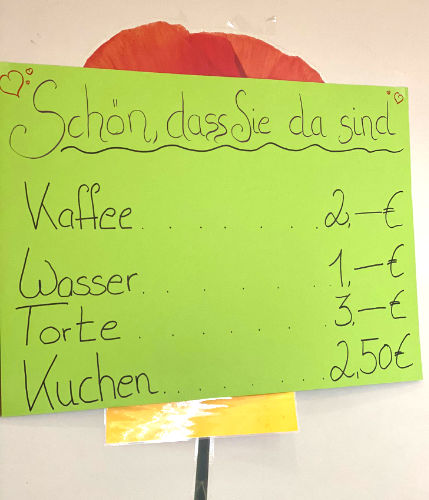 Schön, dass Sie da sind
Kaffee . . . . . . . 2,—€
Wasser . . . . . . . 1,—€
Torte . . . . . . . 3,—€
Kuchen . . . . . . . 2,50€